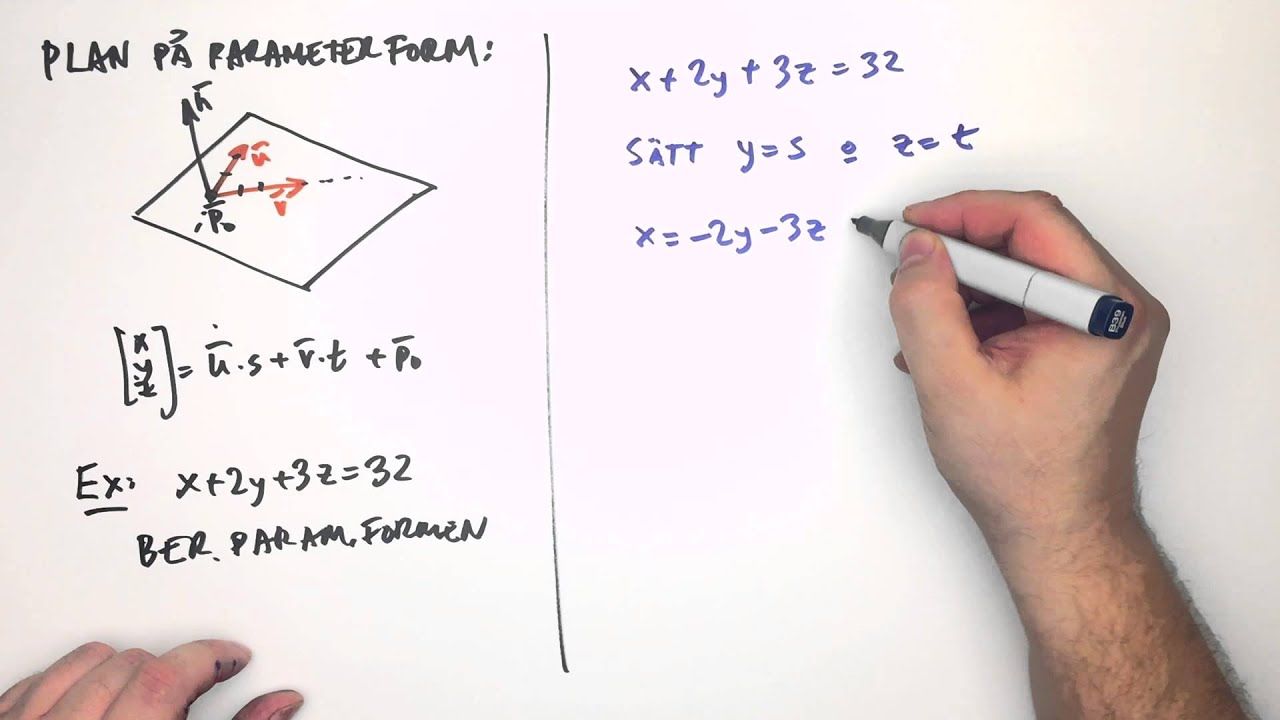 PLAN PÅ PARAMETERFORM:
n̄
ū
v̄
P₀
[x y z] = ū·s + v̄·t + p̄₀
Ex: x+2y+3z=32
BER. PARAM. FORMEN
x+2y+3z=32
SÄTT y=s o z=t
x=-2y-3z
B39